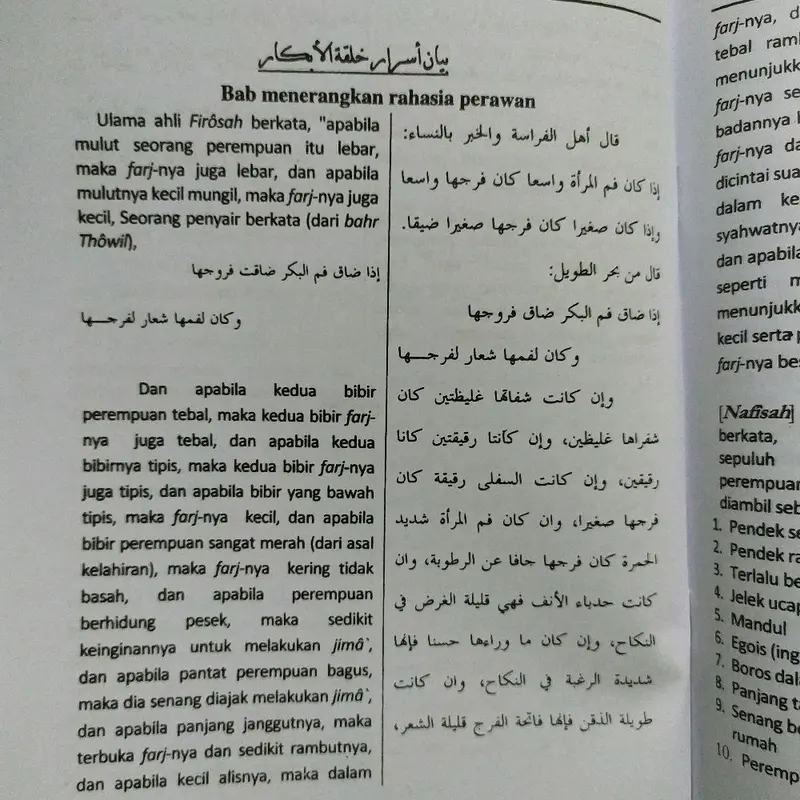 بيان أسرار خلقة الأبكار
Bab menerangkan rahasia perawan
Ulama ahli Firôsah berkata, "apabila
mulut seorang perempuan itu lebar,
maka farj-nya juga lebar, dan apabila
mulutnya kecil mungil, maka farj-nya juga
kecil, Seorang penyair berkata (dari bahr
Thôwil),
إذا ضاق فم البكر ضاقت فروجها
وكان لفمها شعار لفرجـــها
Dan apabila kedua bibir
perempuan tebal, maka kedua bibir farj-
nya juga tebal, dan apabila kedua
bibirnya tipis, maka kedua bibir farj-nya
juga tipis, dan apabila bibir yang bawah
tipis, maka farj-nya kecil, dan apabila
bibir perempuan sangat merah (dari asal
kelahiran), maka farj-nya kering tidak
basah, dan apabila perempuan
berhidung pesek, maka sedikit
keinginannya untuk melakukan jimâ`,
dan apabila pantat perempuan bagus,
maka dia senang diajak melakukan jimâ`,
dan apabila panjang janggutnya, maka
terbuka farj-nya dan sedikit rambutnya,
dan apabila kecil alisnya, maka dalam
قال أهل الفراسة والخبر بالنساء:
إذا كان فم المرأة واسعا كان فرجها واسعا
وإذا كان صغيرا كان فرجها صغيرا ضيقا.
قال من بحر الطويل:
إذا ضاق فم البكر ضاق فروجها
وكان لفمها شعار لفرجـــها
وإن كانت شفاتها غليظتين كان
شفراها غليظين، وإن كانتا رقيقتين كانا
رقيقين، وإن كانت السفلى رقيقة كان
فرجها صغيرا، وان كان فم المرأة شديد
الحمرة كان فرجها جافا عن الرطوبة، وان
كانت حدباء الأنف فهي قليلة الغرض في
النكاح، وإن كان ما وراءها حسنا فإنها
شديدة الرغبة في النكاح، وان كانت
طويلة الذقن فإنها فاتحة الفرج قليلة الشعر،
farj-nya, d
tebal ramb
menunjukk
farj-nya se
badannya
farj-nya da
dicintai sua
dalam ke
syahwatnya
dan apabila
seperti m
menunjukk
kecil serta p
farj-nya bes
[Nafisah]
berkata,
sepuluh
perempuan
diambil seb
1. Pendek se
2. Pendek ra
3. Terlalu be
4. Jelek ucap
5. Mandul
6. Egois (ing
7. Boros dal
8. Panjang ta
9. Senang be
rumah
10. Peremp